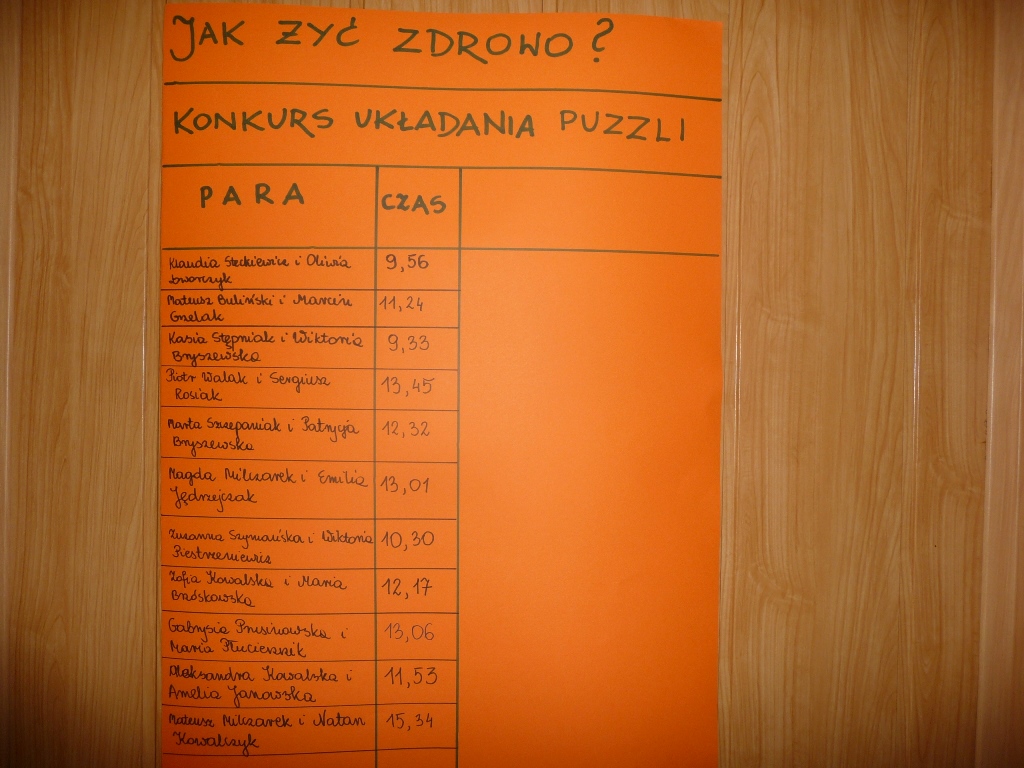 JAK ŻYĆ ZDROWO?
KONKURS UKŁADANIA PUZZLI
PARA CZAS
Klaudia Steckiewicz i Oliwia 9,56
Jaworczyk
Mateusz Buliński i Marcin 11,24
Gnelak
Kasia Stępniak i Wiktoria 9,33
Bryszewska
Piotr Walak i Sergiusz 13,45
Rosiak
Marta Szczepaniak i Patrycja 12,32
Bryszewska
Magda Milczarek i Emilia 13,01
Jędrzejczak
Zuzanna Szymańska i Wiktoria 10,30
Piestrzeniewicz
Zofia Kowalska i Maria 12,17
Brzóskowska
Gabrysia Prusinowska i 13,06
Maria Płuciennik
Aleksandra Kowalska i 11,53
Amelia Janowska
Mateusz Milczarek i Natan 15,34
Kowalczyk